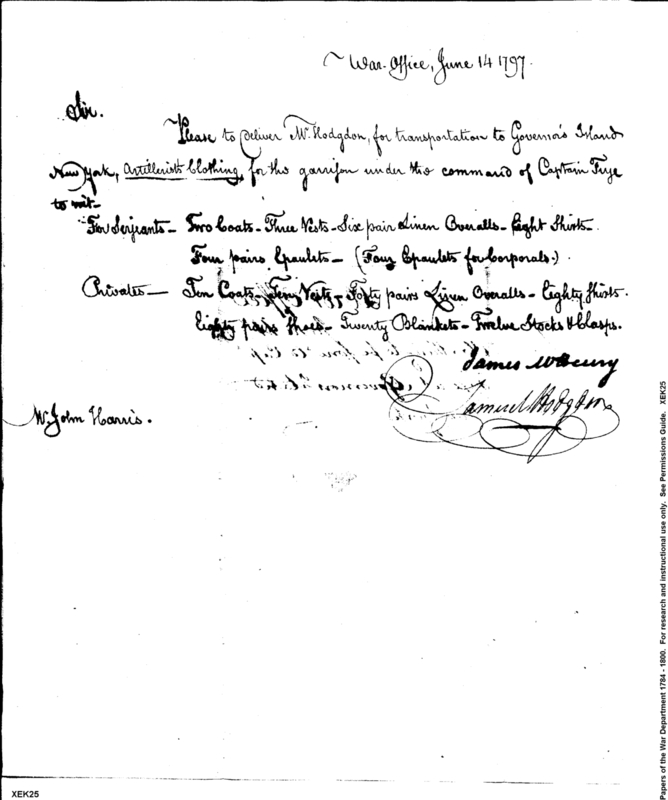 War Office, June 14 1797.
Sir.
Please to deliver Mr. Hodgdon, for transportation to Governor's Island
New York, Artillerists Clothing, for the garrison under the command of Captain Frye
to wit-
For Serjeants - Two Coats - Three Vests - Six pair Linen Overalls - Eight Shirts -
Four pairs Epaulets - (Four Epaulets for Corporals.)
Privates - Ten Coats - Vests - Forty pairs Linen Overalls - Eighty Shirts.
Eighty pairs Shoes - Twenty Blankets - Twelve Stocks & Clasps.
James McHenry
Samuel Hodgdon
Mr. John Harris.
Papers of the War Department 1784 - 1800. For research and instructional use only. See Permissions Guide. XEK25
XEK25